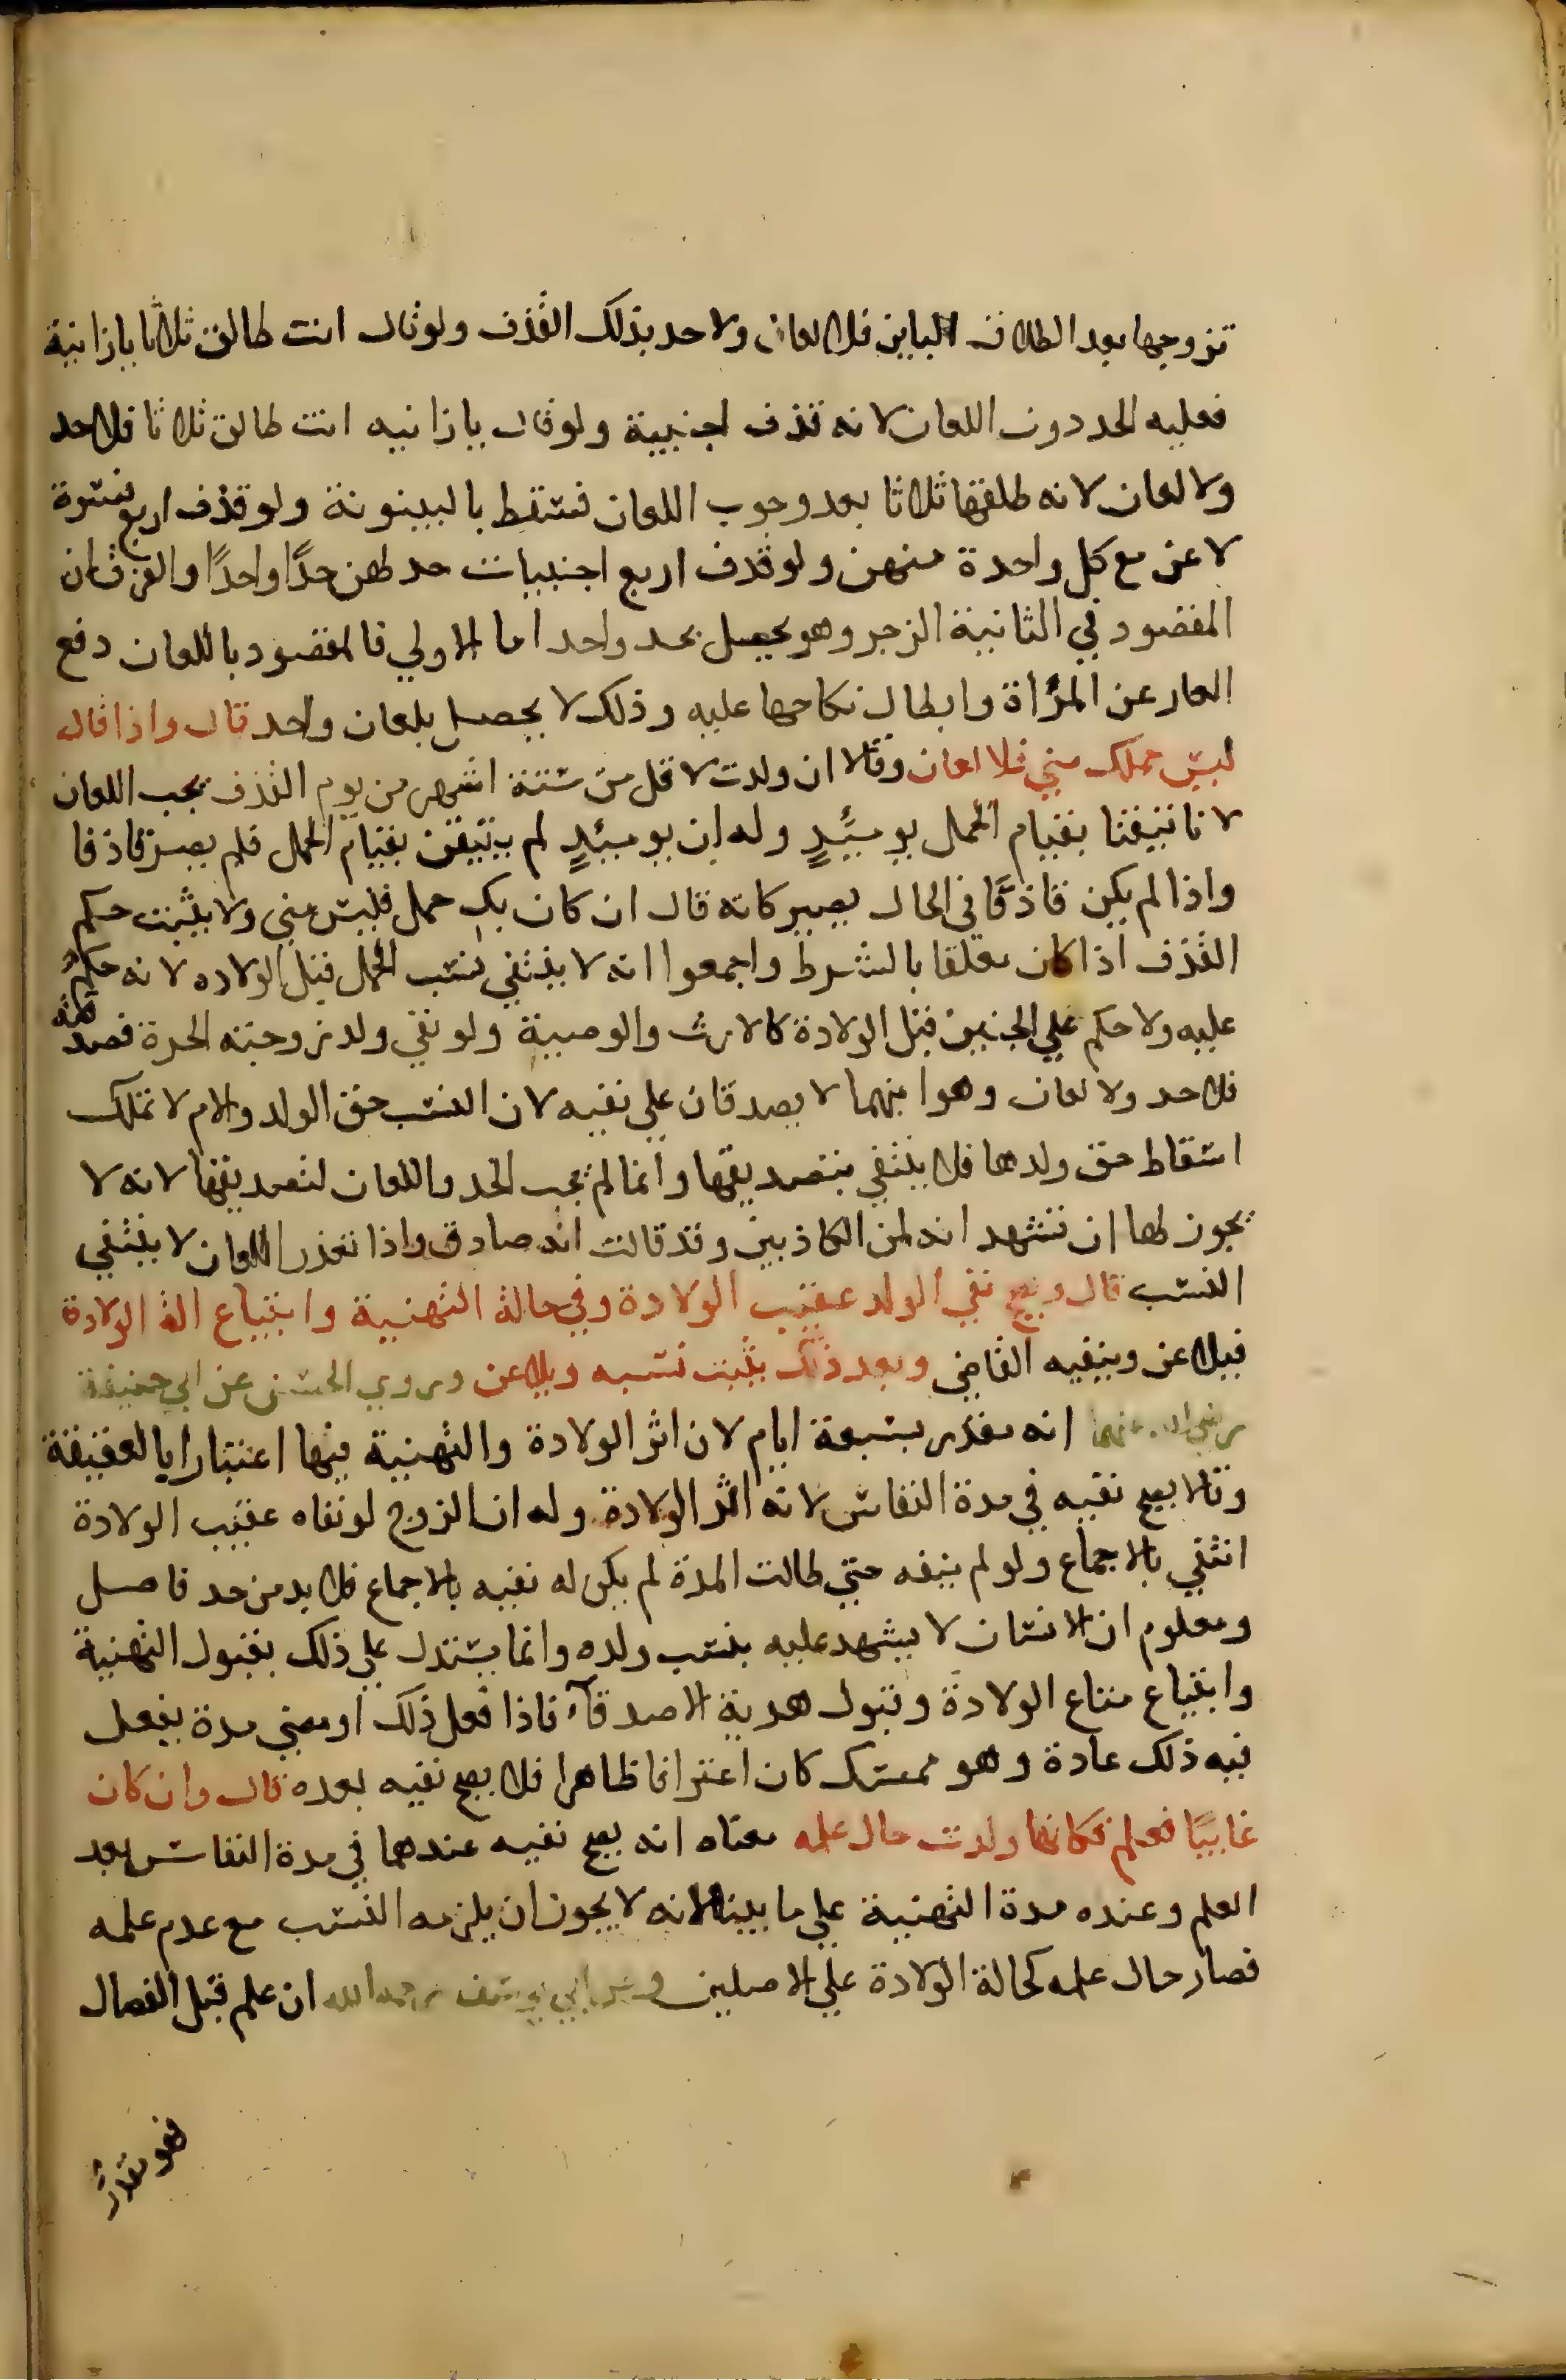 تزوجها بعد الطلاق الباين فلا لعان ولا حد بذلك القذف ولو قال انت طالق ثلاثا يا زانية
فعليه الحد دون اللعان لانه قذف اجنبية ولو قال يا زانيه انت طالق ثلاثا فلا حد
ولا لعان لانه طلقها ثلاثا بعد وجوب اللعان فسقط بالبينونة ولو قذف اربع نسوة
لاعن مع كل واحدة منهن ولو قذف اربع اجنبيات حد لهن حدًا واحدًا والفرق ان
المقصود في الثانية الزجر وهو يحصل بحد واحد اما الاولي فالمقصود باللعان دفع
العار عن المرأة وابطال نكاحها عليه وذلك لا يحصل بلعان واحد قال واذا قال
ليس حملك مني فلا لعان وقالا ان ولدت لاقل من ستة اشهر من يوم القذف يجب اللعان
لانا تيقنا بقيام الحمل يوميئذٍ وله ان يوميئذٍ لم يتيقن بقيام الحمل فلم يصر قاذفا
واذا لم يكن قاذفًا في الحال يصير كانه قال ان كان بك حمل فليس مني ولا يثبت حكم
القذف اذا كان معلقا بالشرط واجمعوا انه لا ينتفي نسب الحمل قبل الولاده لانه حكم
عليه ولا حكم علي الجنين قبل الولادة كالارث والوصية ولو نفي ولد زوجته الحرة فصدقته
فلا حد ولا لعان وهو ابنهما لا يصدقان علي نفيه لان النسب حق الولد والام لا تملك
اسقاط حق ولدها فلا ينتفي بتصديقها وانما لم يجب الحد واللعان لتصديقها لانه لا
يجوز لها ان تشهد انه لمن الكاذبين وقد قالت انه صادق واذا تعذر اللعان لا ينتفي
النسب قال ويصح نفي الولد عقيب الولادة وفي حالة التهنية وابتياع الة الولادة
فيلاعن وينفيه القاضي وبعد ذلك يثبت نسبه ويلاعن وروي الحسن عن ابي حنيفة
رضي الله عنهما انه مقدر بسبعة ايام لان اثر الولادة والتهنية فيها اعتبارا بالعقيقة
وقالا يصح نفيه في مدة النفاس لانه اثر الولادة وله ان الزوج لو نفاه عقيب الولادة
انتفي بالاجماع ولو لم ينفه حتي طالت المدة لم يكن له نفيه بالاجماع فلا بد من حد فاصل
ومعلوم ان الانسان لا يشهد عليه بنسب ولده وانما يستدل علي ذلك بقبول التهنية
وابتياع متاع الولادة وقبول هدية الاصدقآء فاذا فعل ذلك او مضي مدة يفعل
فيه ذلك عادة وهو ممسك كان اعترافا ظاهرا فلا يصح نفيه بعده قال وان كان
غايبًا فعلم فكانها ولدت حال علمه معناه انه يصح نفيه عندهما في مدة النفاس بعد
العلم وعنده مدة التهنية علي ما بينا لانه لا يجوز ان يلزمه النسب مع عدم علمه
فصار حال علمه كحالة الولادة علي الاصلين وعن ابي يوسف رحمه الله ان علم قبل الفصال
فهو مقدر